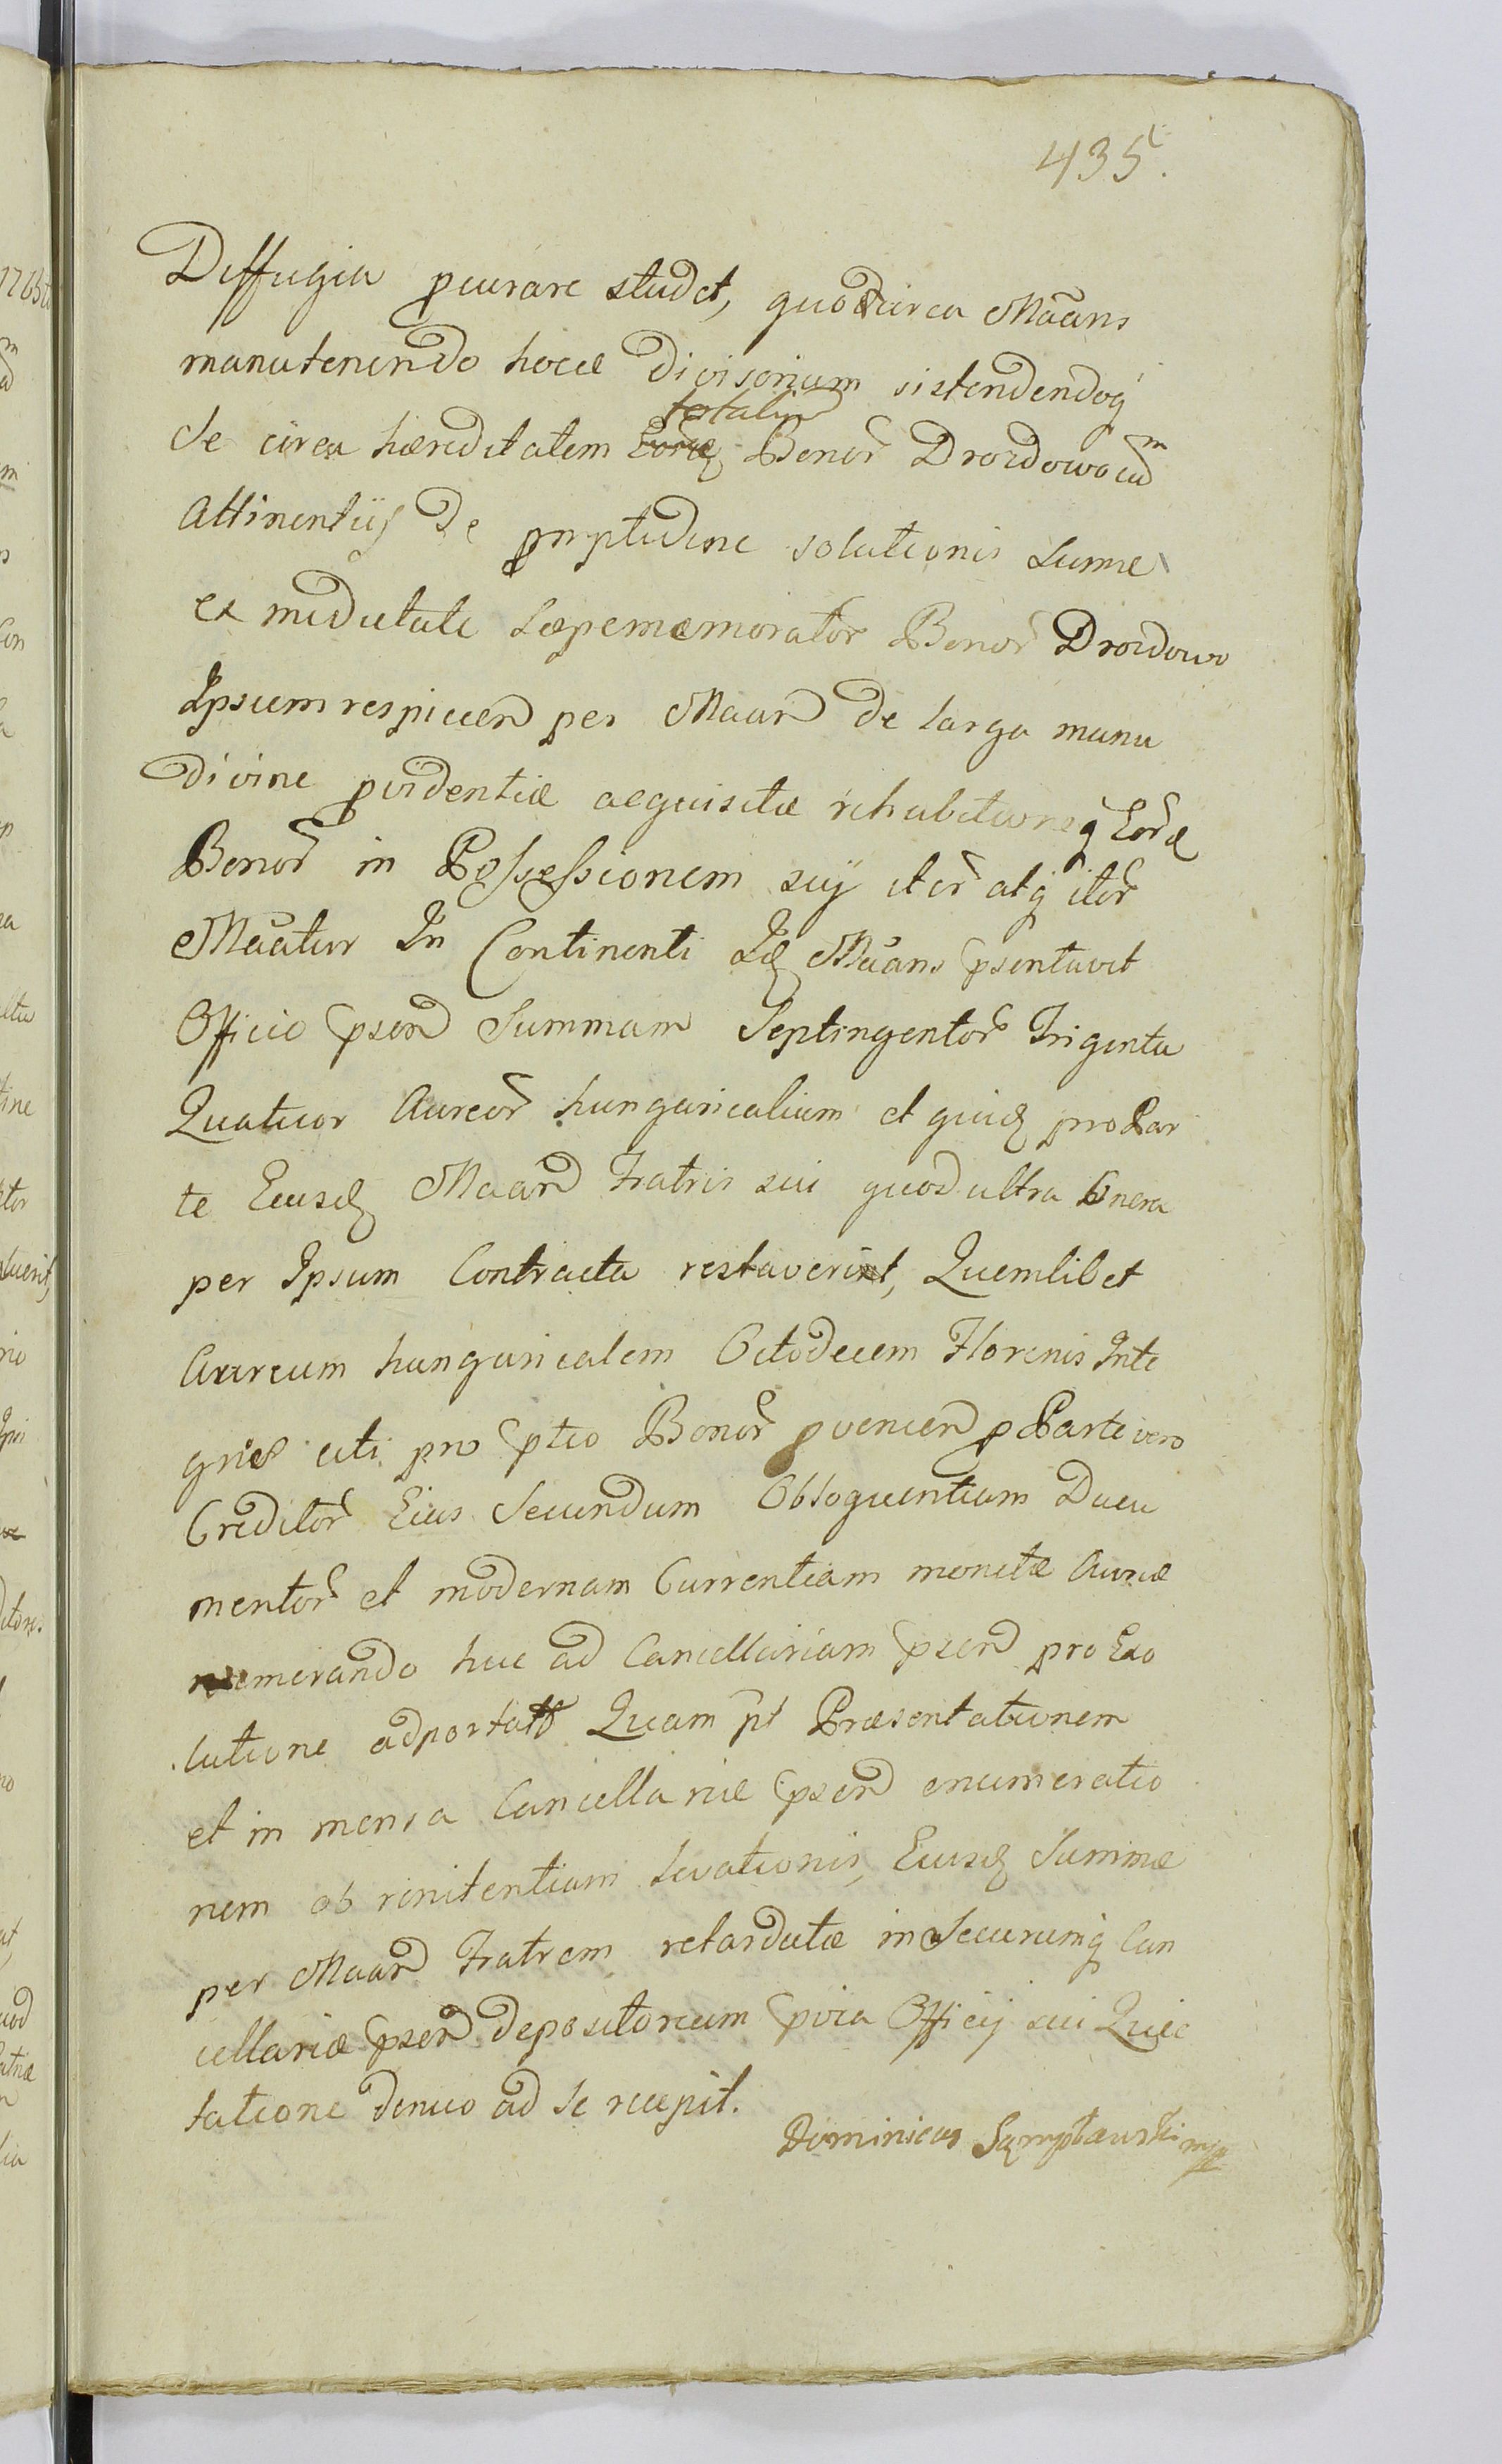 435.
Diffugia pcurare studet, quocirca Maans
manutenendo hocce divisorium sistendendoq
totaliu
Se circa hæreditatem Eorde Bonor Drozdowo cum
Attinentiis de promptitudine solutionis Summe
ex medietate Sæpemæmorator Bonor Drozdowo
Ipsum respicien per Maan de larga manu
divine pvidentiæ acquisitæ rehabitioneq Eorde
Bonor in Possessionem suÿ iter atq iter
Maatur In Continenti Id Maans psentavit
Officio psen Summam Septingentor Triginta
Quatuor Aureor hungaricalium et quid pro Par
te Eiusd Maan Fratris sui quod ultra Onera
per Ipsum Contracta restaverint, Quemlibet
Aureum hungaricalem Octodecem Florenis Inte
gris uti pro ptio Bonor pvenien p Parte vero
Creditor Eius Secundum Obloquentiam Docu
mentor et modernam Currentiam monetæ Aureæ
numerando huc ad Cancellariam psen pro Exo
lutione adportat Quam pt Præsentationem
et in mensa Cancellariæ psen enumeratio
nem ob renitentiam Levationis, Eiusd Summæ
per Maan Fratrem retardatæ in Securumq Can
cellariæ psen depositorium pvia Officij sui Quie
tatione denuo ad se recepit.
Dominicus mp